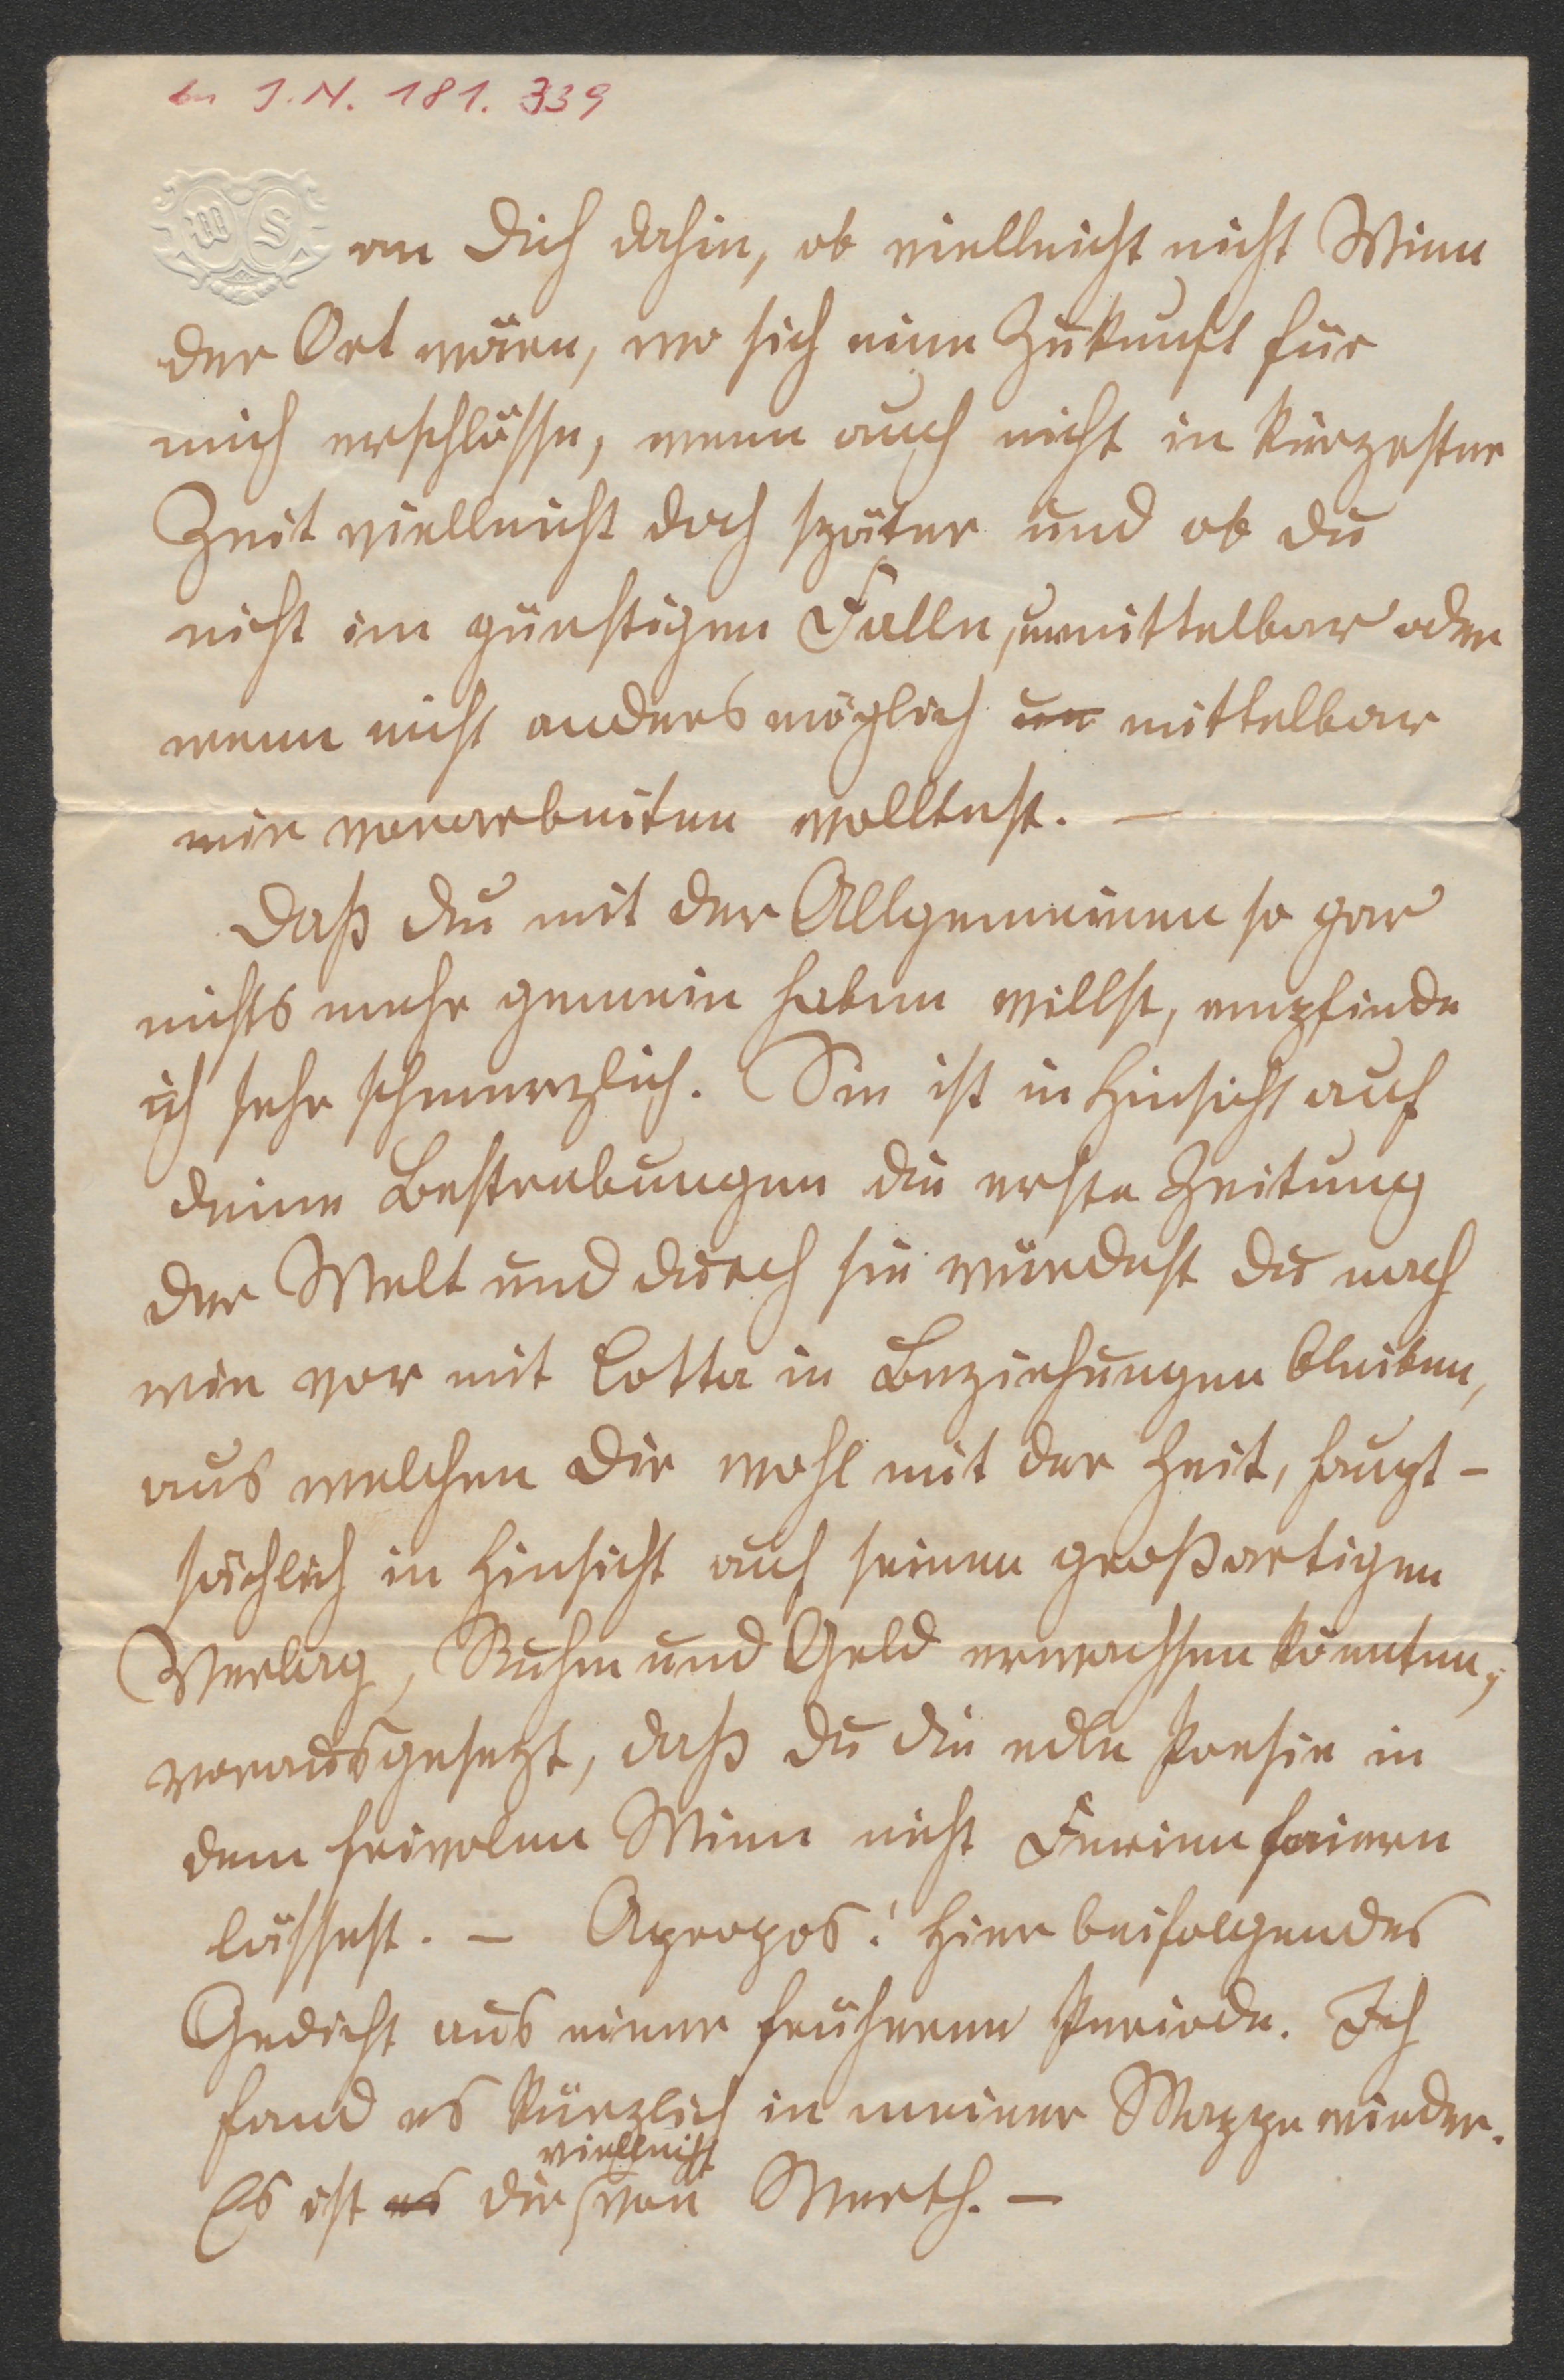 J.N. 181.339
WS
an Dich dahin, ob vielleicht nicht Wien
der Ort wäre, wo sich eine Zukunft für
mich erschlösse, wenn auch nicht in kürzester
Zeit vielleicht doch später und ob du
nicht im günstigen Falle, unmittelbar oder
wenn nicht anders möglich un mittelbar
mir vorarbeiten wolltest. —
Daß du mit der Allgemeinen so gar
nichts mehr gemein haben willst, empfinde
ich sehr schmerzlich. Sie ist in Hinsicht auf
deine Bestrebungen die erste Zeitung
der Welt und durch sie würdest du nach
wie vor mit Cotta in Beziehungen bleiben,
aus welchen Dir wohl mit der Zeit, haupt-
sächlich in Hinsicht auf seinen großartigen
Verlag, Ruhm und Geld erwachsen könnten,
vorausgesetzt, daß du die edle Poesie in
dem frivolen Wien nicht Ferien feiern
lässest. — Apropos! Hier beifolgendes
Gedicht aus einer früheren Periode. Ich
fand es kürzlich in meiner Mappe wieder.
vielleicht
Es ist es dir von Werth. —